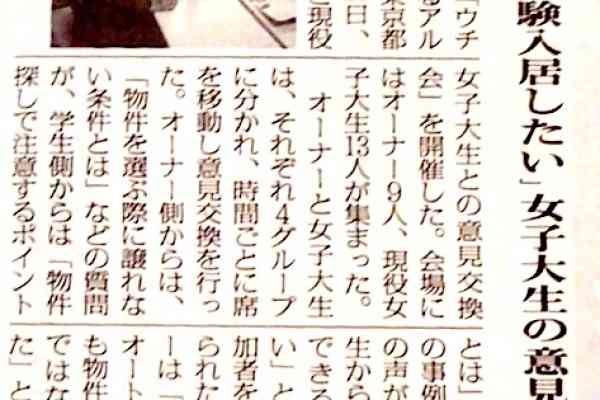 験入居したい」女子大生の意見
「ウチ
るアル
東京都
日、
と現役
女子大生との意見交換
会」を開催した。会場に
はオーナー9人、現役女
子大生13人が集まった。
オーナーと女子大生
は、それぞれ4グループ
に分かれ、時間ごとに席
を移動し意見交換を行っ
た。オーナー側からは、
「物件を選ぶ際に譲れな
い条件とは」などの質問
が、学生側からは「物件
探しで注意するポイント
とは」
の事例
の声が
生から
できる
い」と
加者を
られた
ーは「
オート
も物件
ではな
た」と